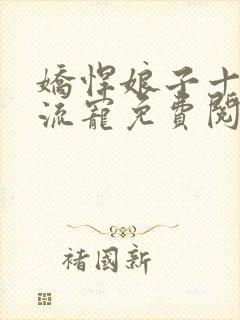 嬌悍娘子十
流寵免費閱
褚國新